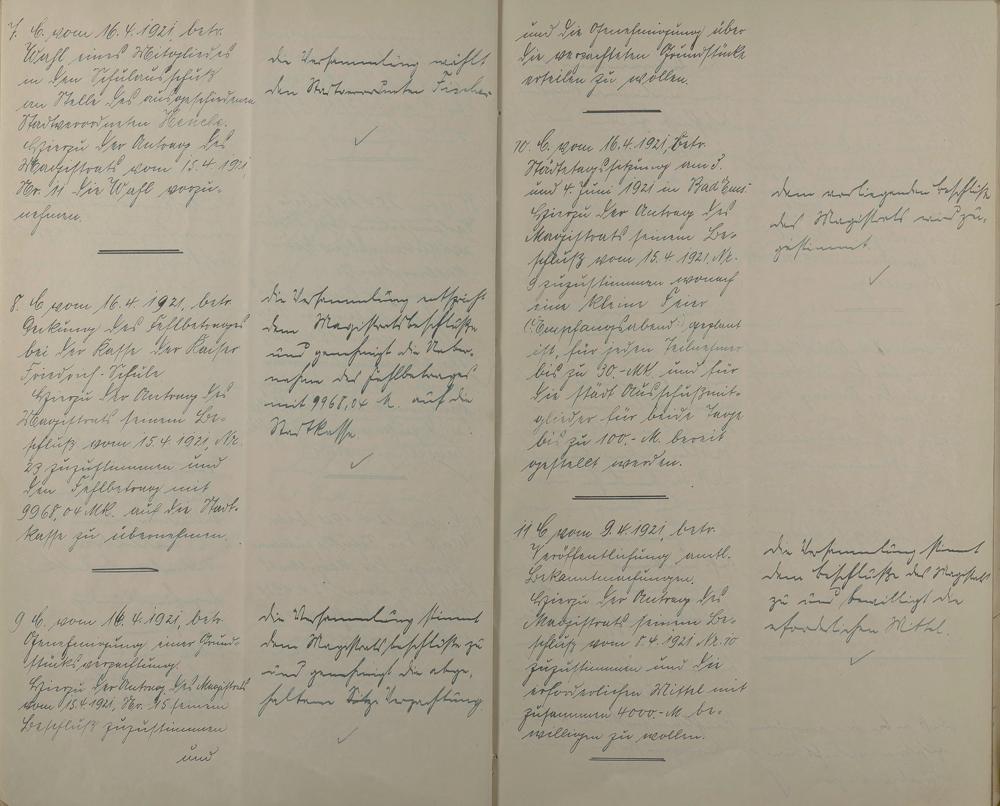 7. C. vom 16.4.1921, betr.
Wahl eines Mitgliedes
in den Schulausschuß
an Stelle des ausgeschiedenen
Stadtverordneten
Hierzu der Antrag des
Magistrats vom 15.4.1921
Nr. 11 die Wahl vorzu-
nehmen.
die Versammlung wählt
den Stadtverordneten Fischer
8. C vom 16.4.1921, betr.
Deckung des Fehlbetrages
bei der Kasse der Kaiser
Friedrich-Schule
Hierzu der Antrag des
Magistrats seinem Be-
schluß vom 15.4.1921, Nr.
23 zuzustimmen und
den Fehlbetrag mit
9968,04 Mk. auf die Stadt-
kasse zu übernehmen.
die Versammlung entspricht
dem Magistratsbeschluße
und genehmigt die Ueber-
nahme des Fehlbetrages
mit 9968,04 M. auf die
Stadtkasse
9 C. vom 16.4.1921, betr.
Genehmigung einer Grund-
stücksverpachtung.
Hierzu der Antrag des Magistrats
vom 15.4.1921, Nr. 15 seinem
Beschluß zuzustimmen
und
die Versammlung stimmt
dem Magistratsbeschluße zu
und genehmigt die abge-
haltene Verpachtung
und die Genehmigung über
die verpachteten Grundstücke
erteilen zu wollen.
10. C. vom 16.4.1921, betr.
Städtetagssitzung am 3.
und 4. Juni 1921 in Bad Ems.
Hierzu der Antrag des
Magistrats seinem Be-
schluß vom 15.4.1921, Nr.
9 zuzustimmen wonach
eine kleine Feier
(Empfangsabend) geplant
ist, für jeden Teilnehmer
bis zu 30.-Mk. und für
die städt Ausschußmit-
glieder für beide Tage
bis zu 100.- M. bereit
gestellt werden.
dem vorliegenden Beschluße
des Magistrats wird zu-
gestimmt
11 C vom 9.4.1921, betr.
Veröffentlichung amtl.
Bekanntmachungen.
Hierzu der Antrag des
Magistrats seinem Be-
schluß vom 8.4.1921 Nr. 10
zuzustimmen und die
erforderlichen Mittel mit
zusammen 4000.-M. be-
willigen zu wollen.
die Versammlung stimmt
dem Beschluße des Magistrats
zu und bewilligt die
erforderlichen Mittel.